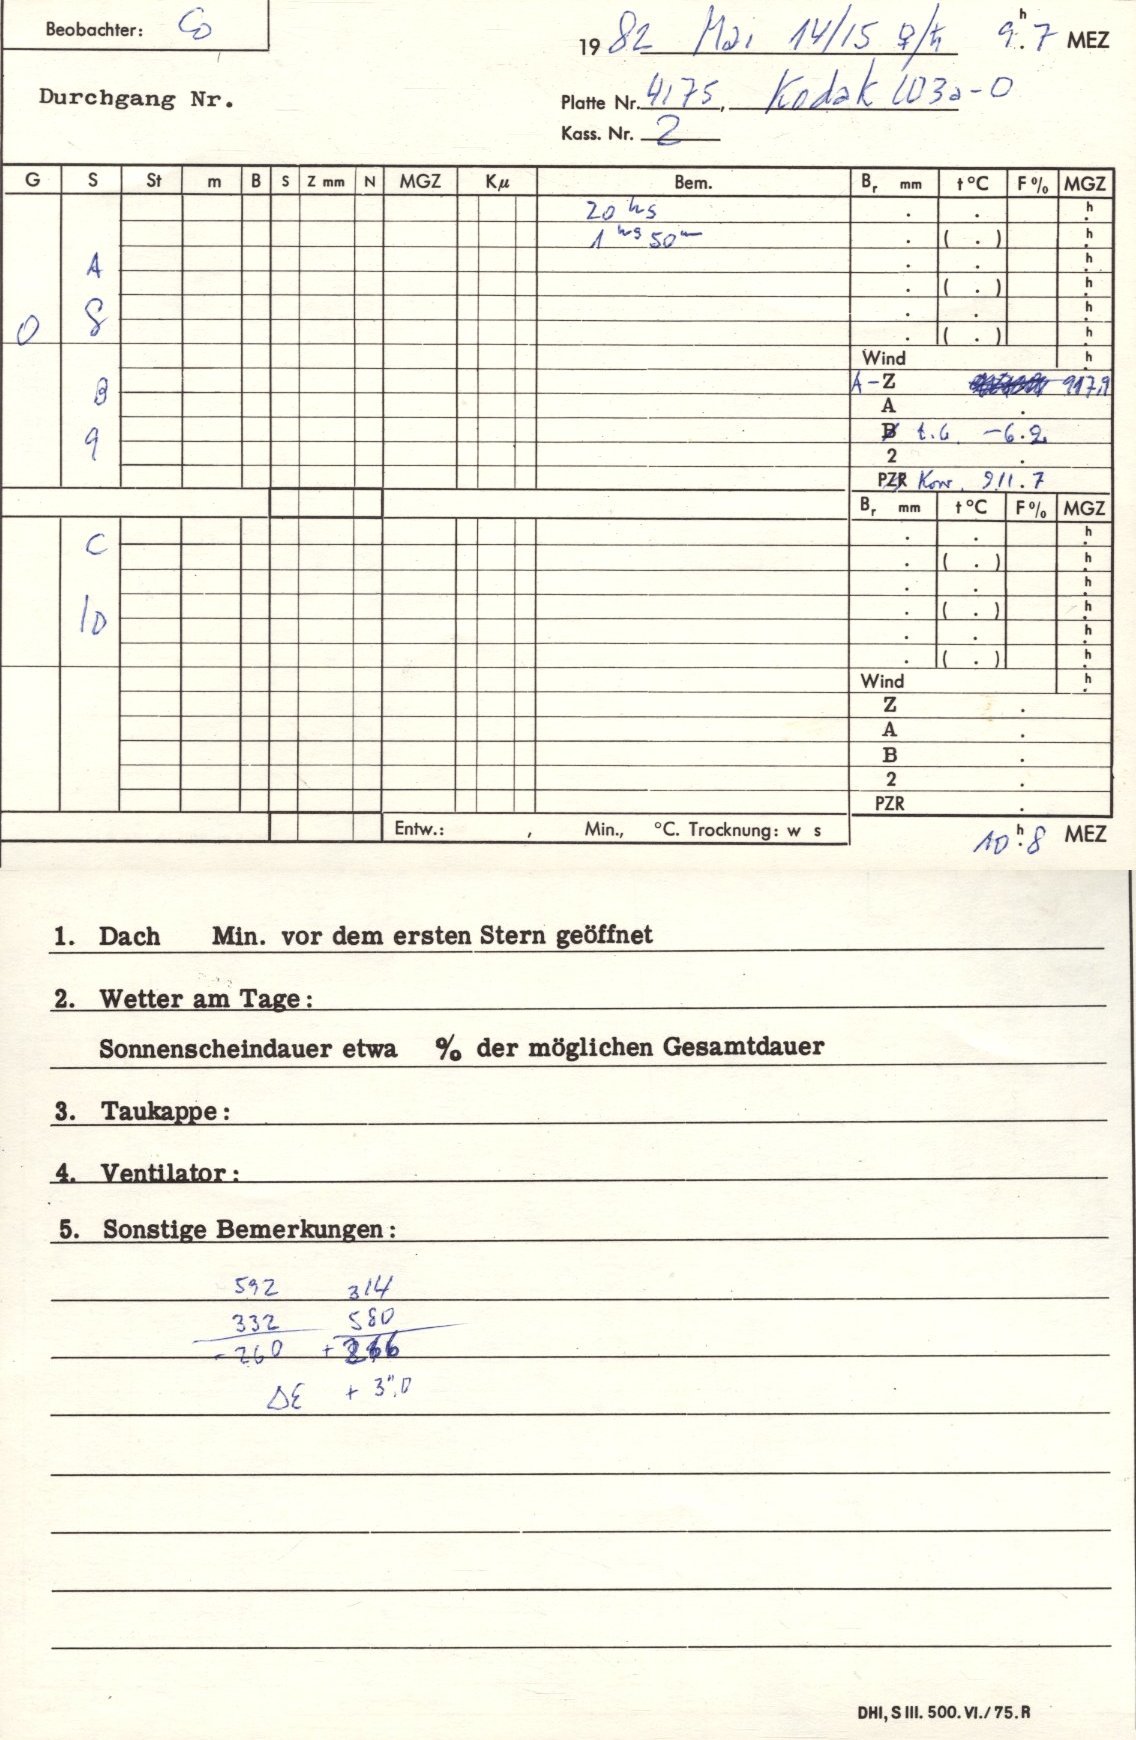 Beobachter: Co
19 82 Mai 14/15 ♀/♄ 9.h7 MEZ
Durchgang Nr.
Platte Nr. 4175, Kodak 103a-O
Kass. Nr. 2
G S St m B S Z mm N MGZ Kμ Bem. Br mm t°C F% MGZ
20 hs . . h
1 hs 50 m . ( . ) h
A . . h
. ( . ) h
8 . . h
0 . ( . ) h
Wind h
A - Z 917,9
B A .
B t.G. -6.2
9 2 .
PZR Korr. 911.7
Br mm t°C F% MGZ
C . . h
. ( . ) h
. . h
10 . ( . ) h
. . h
. ( . ) h
Wind h
Z .
A .
B .
2 .
PZR .
Entw.: , Min., °C. Trocknung: w s
10.h8 MEZ
1. Dach Min. vor dem ersten Stern geöffnet
2. Wetter am Tage:
Sonnenscheindauer etwa % der möglichen Gesamtdauer
3. Taukappe:
4. Ventilator:
5. Sonstige Bemerkungen:
592 314
332 580
-260 +266
Δε + 3".0
DHI, S III. 500. VI./75. R